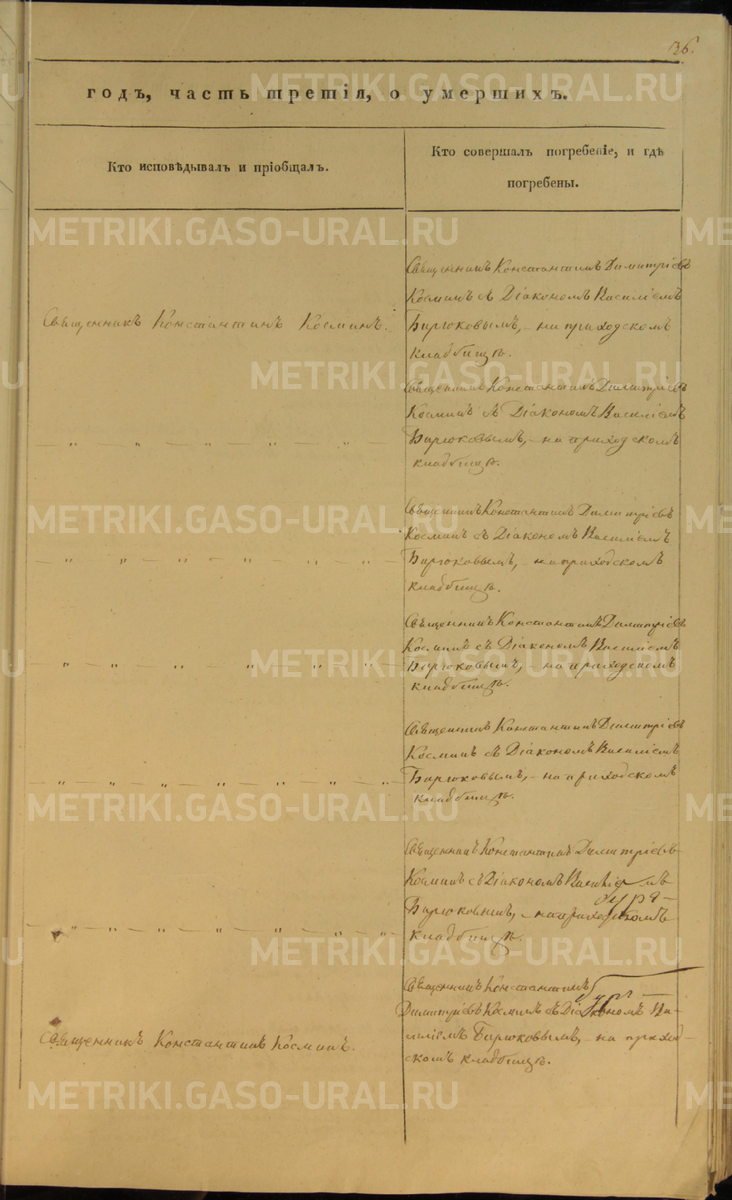 136.
годъ, часть третія, о умершихъ.
Кто исповѣдывалъ и пріобщалъ.
Кто совершалъ погребеніе, и гдѣ
погребены.
Священникъ Константинъ Косминъ.
Священникъ Константинъ Димитріевъ
Косминъ съ Діакономъ Василіемъ
Бирюковымъ, – на приходскомъ
кладбищѣ.
– „ – „ – „ – „ – „ –
Священникъ Константинъ Димитріевъ
Косминъ съ Діакономъ Василіемъ
Бирюковымъ, – на приходскомъ
кладбищѣ.
– „ – „ – „ – „ – „ – „ –
Священникъ Константинъ Димитріевъ
Косминъ съ Діакономъ Василіемъ
Бирюковымъ, – на приходскомъ
кладбищѣ.
– „ – „ – „ – „ – „ – „ –
Священникъ Константинъ Димитріевъ
Косминъ съ Діакономъ Василіемъ
Бирюковымъ, – на приходскомъ
кладбищѣ.
– „ – „ – „ – „ – „ – „ – „
Священникъ Константинъ Димитріевъ
Косминъ съ Діакономъ Василіемъ
Бирюковымъ, – на приходскомъ
кладбищѣ.
– „ – „ – „ – „ – „ – „ – „
Священникъ Константинъ Димитріевъ
Косминъ съ Діакономъ Василіемъ
Бирюковымъ, – на приходскомъ
кладбищѣ.
Священникъ Константинъ Косминъ.
Священникъ Константинъ
Димитріевъ Косминъ съ Діакономъ Ва-
силіемъ Бирюковымъ, – на приход-
скомъ кладбищѣ.
METRIKI.GASO-URAL.RU